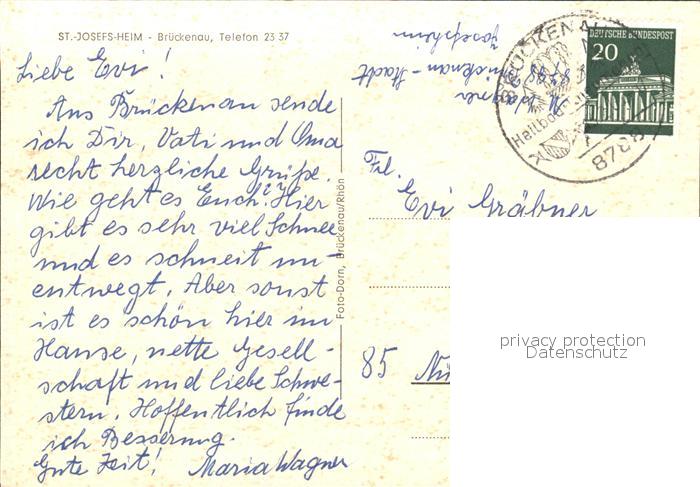 ST.-JOSEFS-HEIM - Brückenau, Telefon 23 37
Liebe Evi!
Aus Brückenau sende
ich Dir, Vati und Oma
recht herzliche Grüße.
Wie geht es Euch? Hier
gibt es sehr viel Schnee
und es schneit un-
entwegt. Aber sonst
ist es schön hier im
Hause, nette Gesell-
schaft und liebe Schwe-
stern. Hoffentlich finde
ich Besserung.
Gute Zeit! Maria Wagner
Foto-Dorn, Brückenau/Rhön
M. Wagner
8788 Brückenau-Stadt
Josefsheim
BRÜCKENAU
Heilbad
8788
DEUTSCHE BUNDESPOST
20
Frl.
Evi Gräbner
85
privacy protection
Datenschutz